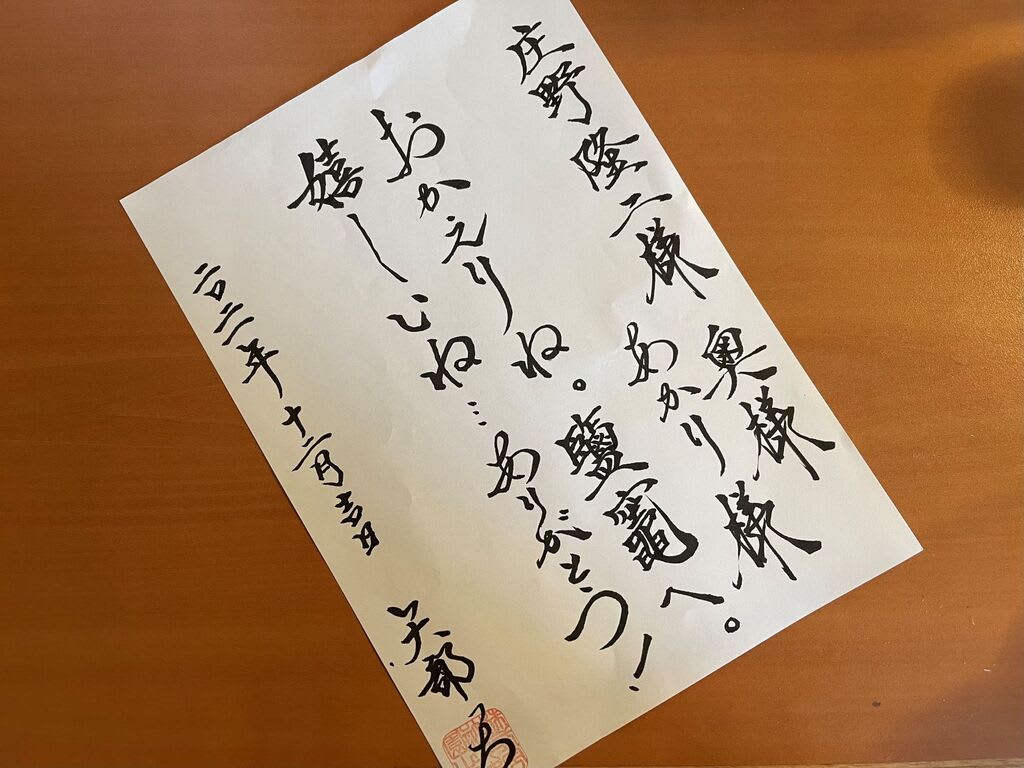 庄野隆二様 奥様
あかり様
おかえりね。鹽竈へ。
嬉しいね…ありがとう!
二〇二二年十二月吉日
矢部